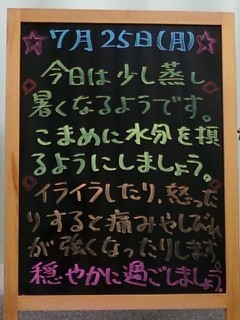 7月25日(月)
今日は少し蒸し
暑くなるようです。
こまめに水分を摂
るようにしましょう。
イライラしたり、怒った
りすると痛みやしびれ
が強くなったりします。
穏やかに過ごしましょう。